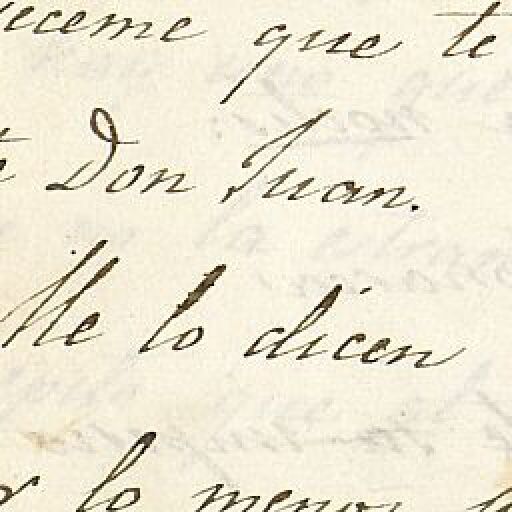 que te
Don Juan.
Me lo dicen
lo menos